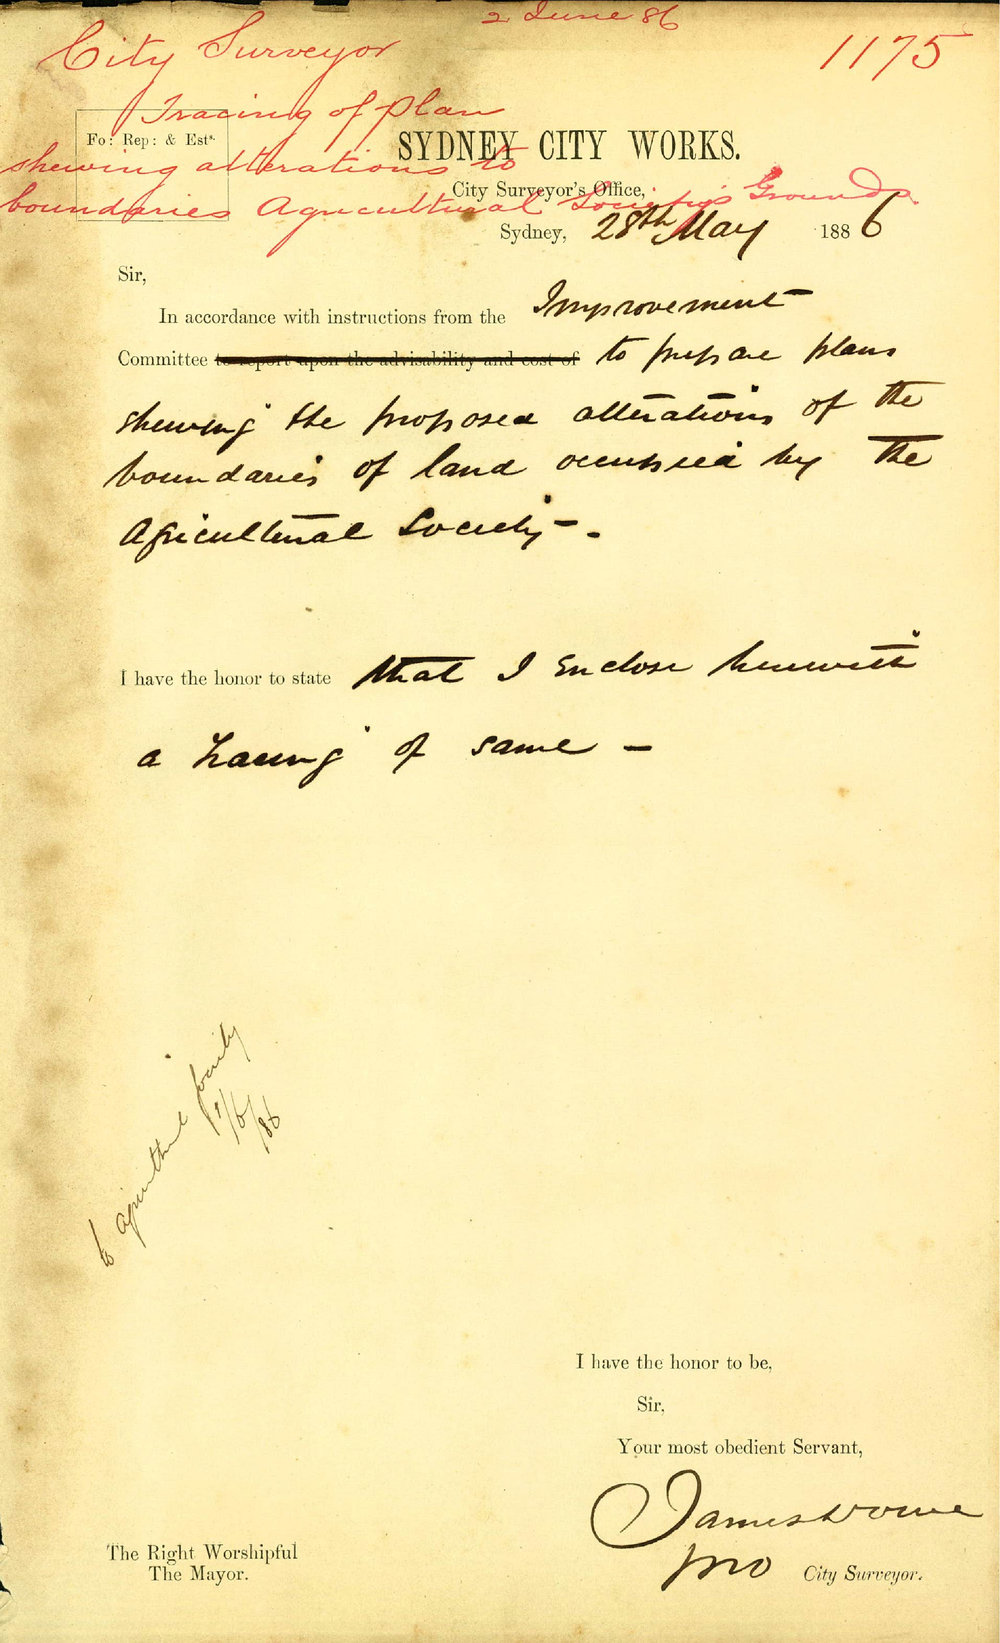 2 June 86
City Surveyor
1175
Tracing of plan
Fo: Rep: & Ests.
SYDNEY CITY WORKS.
shewing alterations to
City Surveyor's Office,
boundaries Agricultural Society's Grounds.
Sydney, 28th May 1886
Sir,
In accordance with instructions from the Improvement
Committee to report upon the advisability and cost of to prepare plans
shewing the proposed alterations of the
boundaries of land occupied by the
Agricultural Society -.
I have the honor to state that I enclose herewith
a tracing of same -
to Agricultural Society
1/6/86
I have the honor to be,
Sir,
Your most obedient Servant,
James
pro City Surveyor.
The Right Worshipful
The Mayor.